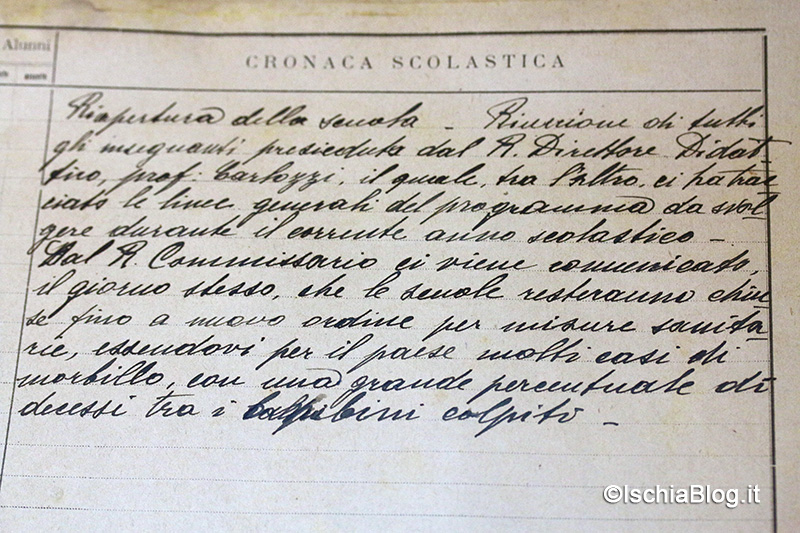 Alunni
CRONACA SCOLASTICA
Riapertura della scuola - Riunione di tutti
gli insegnanti presieduta dal R. Direttore Didat-
tico, prof: Cartozzi, il quale, tra l'altro, ci ha trac
ciato le linee generali del programma da svol
gere durante il corrente anno scolastico -
Dal R. Commissario ci viene comunicato,
il giorno stesso, che le scuole resteranno chiu
se fino a nuovo ordine per misure sanita
rie, essendovi per il paese molti casi di
morbillo, con una grande percentuale di
decessi tra i bambini colpiti -
©IschiaBlog.it